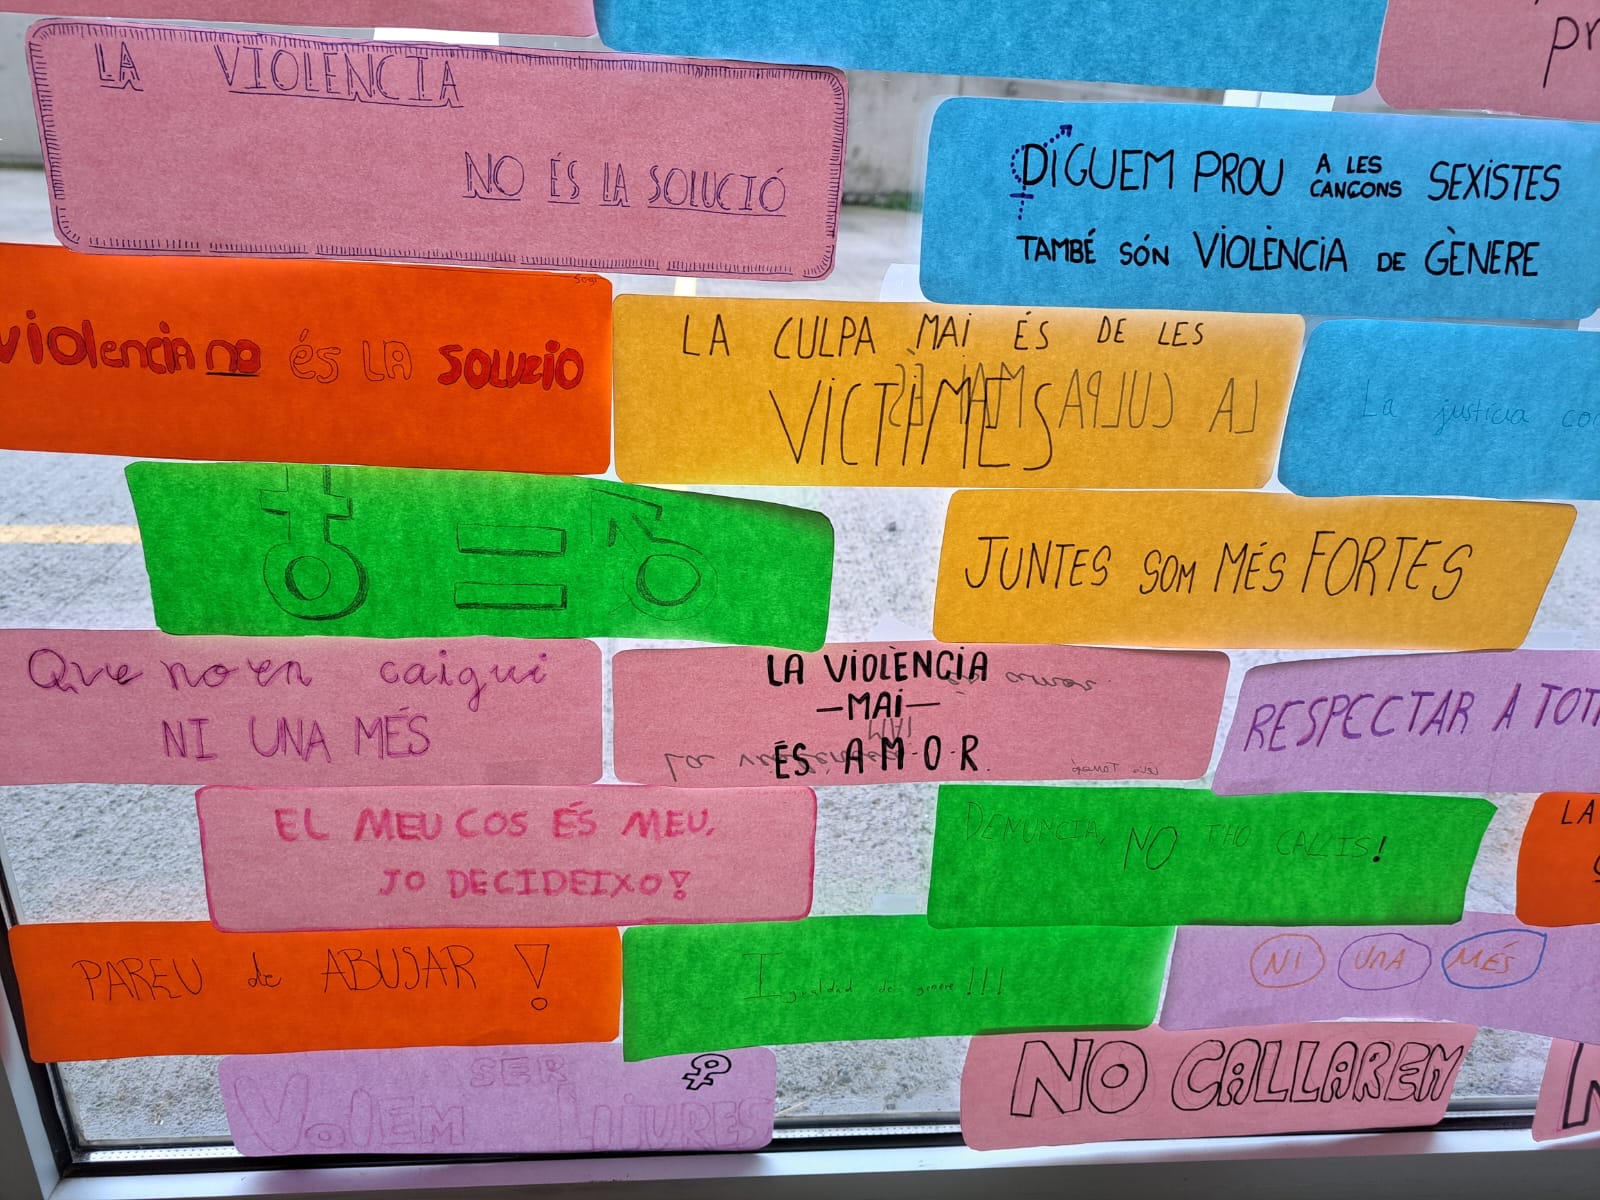 pr
LA VIOLENCIA
NO ÉS LA SOLUCIÓ
DIGUEM PROU A LES CANÇONS SEXISTES
TAMBÉ SÓN VIOLÈNCIA DE GÈNERE
violencia no és LA SOLUZIO
LA CULPA MAI ÉS DE LES
VÍCTIMES
LA CULPA MAI ÉS
La justicia co
=
JUNTES SOM MÉS FORTES
Que no en caigui
NI UNA MÉS
LA VIOLÈNCIA
—MAI—
ÉS A·M·O·R.
RESPECTAR A TOT
EL MEU COS ÉS MEU,
JO DECIDEIXO!
DENUNCIA, NO THO CALLIS!
LA
PAREU de ABUSAR !
Igualdad de genere!!!
NI UNA MÉS
SER
Volem LLIURES
NO CALLAREM
N